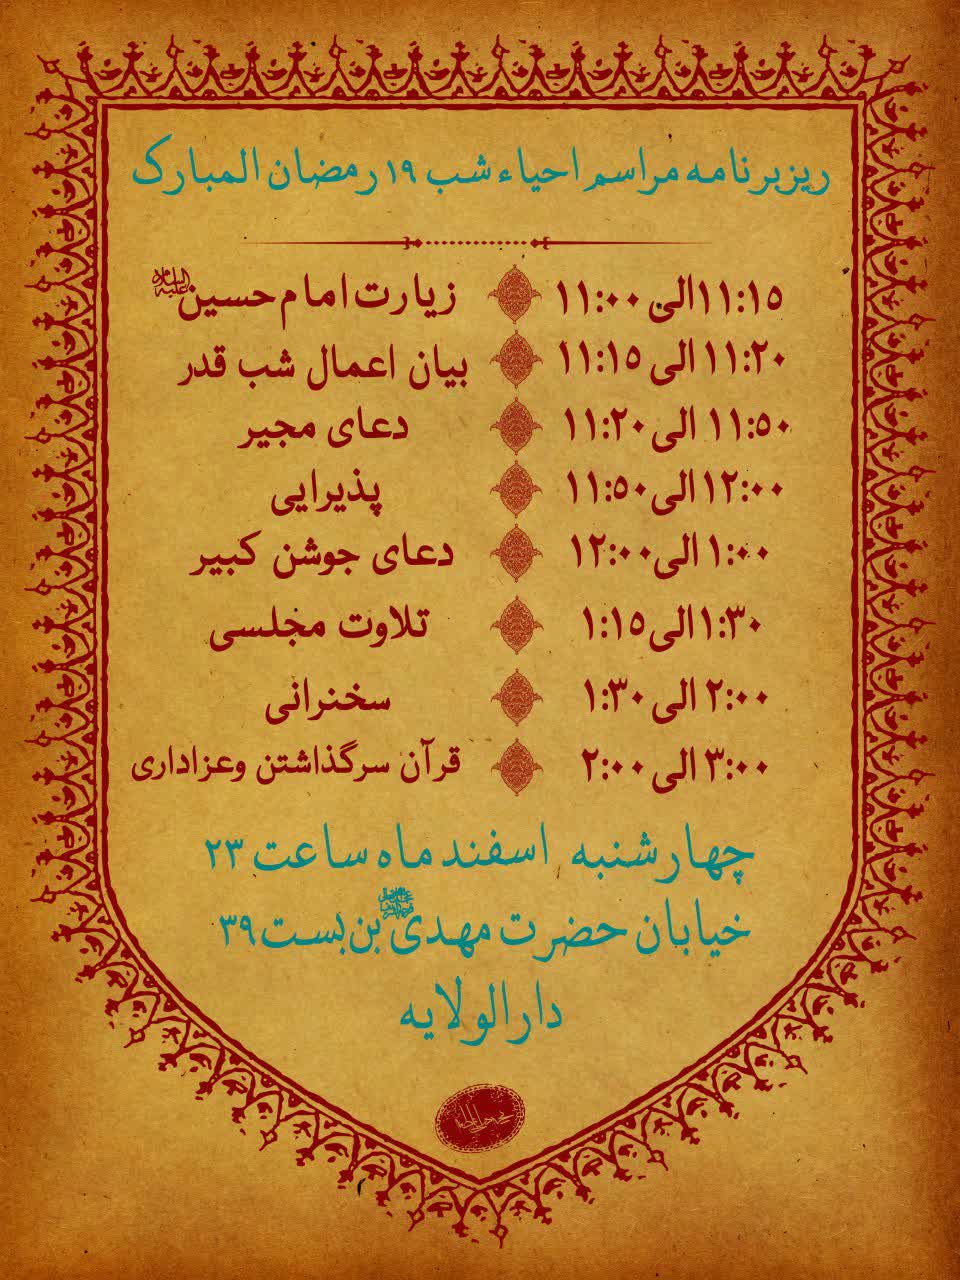 ریزبرنامه مراسم احیاء شب ۱۹ رمضان المبارک
۱۱:۱۵ الی ۱۱:۰۰ زیارت امام حسین علیه‌السلام
۱۱:۲۰ الی ۱۱:۱۵ بیان اعمال شب قدر
۱۱:۵۰ الی ۱۱:۲۰ دعای مجیر
۱۲:۰۰ الی ۱۱:۵۰ پذیرایی
۱:۰۰ الی ۱۲:۰۰ دعای جوشن کبیر
۱:۳۰ الی ۱:۱۵ تلاوت مجلسی
۲:۰۰ الی ۱:۳۰ سخنرانی
۳:۰۰ الی ۲:۰۰ قرآن سرگذاشتن وعزاداری
چهارشنبه اسفند ماه ساعت ۲۳
خیابان حضرت مهدی بن بست ۳۹
دارالولایه